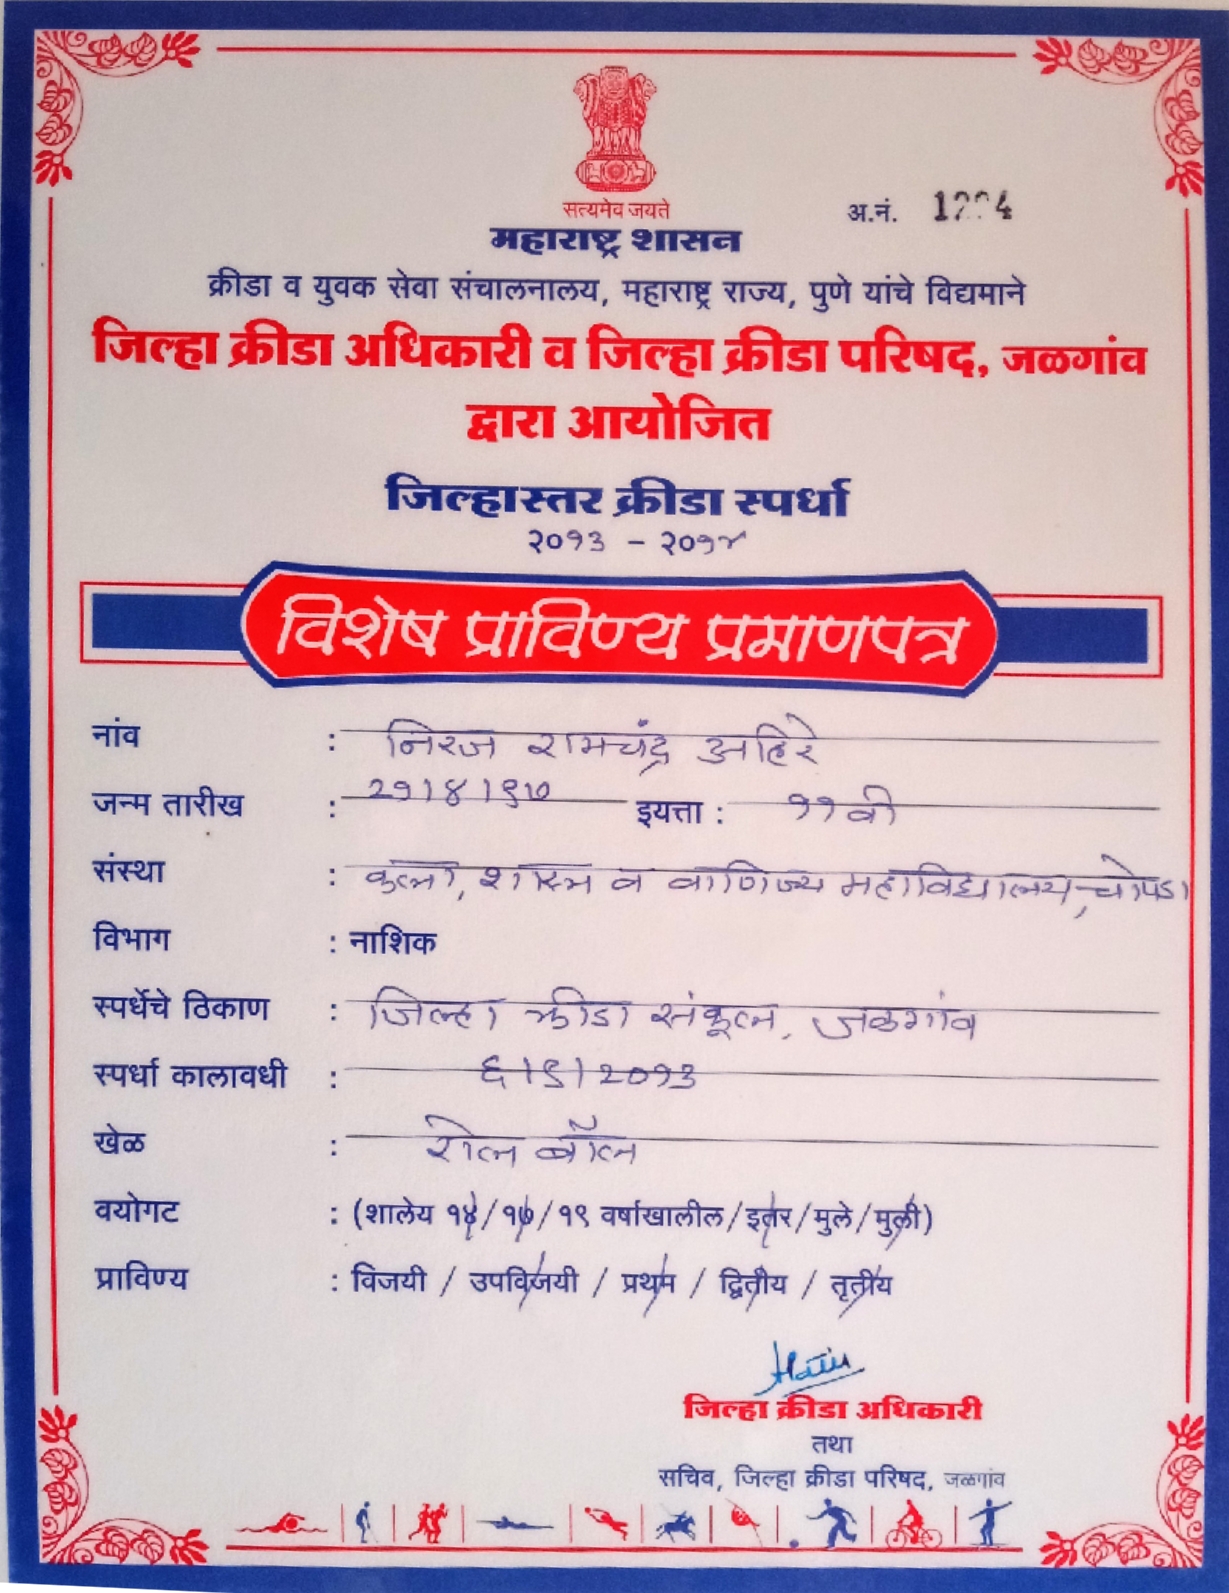 सत्यमेव जयते
अ.नं.
महाराष्ट्र शासन
क्रीडा व युवक सेवा संचालनालय, महाराष्ट्र राज्य, पुणे यांचे विद्यमाने
जिल्हा क्रीडा अधिकारी व जिल्हा क्रीडा परिषद, जळगांव
द्वारा आयोजित
जिल्हास्तर क्रीडा स्पर्धा
२०१३ - २०१४
विशेष प्राविण्य प्रमाणपत्र
नांव : निरज रामचंद्र अहिरे
जन्म तारीख : इयत्ता : ११वी
संस्था : कला, शास्त्र व वाणिज्य महाविद्यालय, चोपडा
विभाग : नाशिक
स्पर्धेचे ठिकाण : जिल्हा क्रीडा संकूल, जळगांव
स्पर्धा कालावधी : ६/९/२०१३
खेळ : रोल बॉल
वयोगट : (शालेय १४/१७/१९ वर्षाखालील/इतर/मुले/मुली)
प्राविण्य : विजयी / उपविजयी / प्रथम / द्वितीय / तृतीय
जिल्हा क्रीडा अधिकारी
तथा
सचिव, जिल्हा क्रीडा परिषद, जळगांव